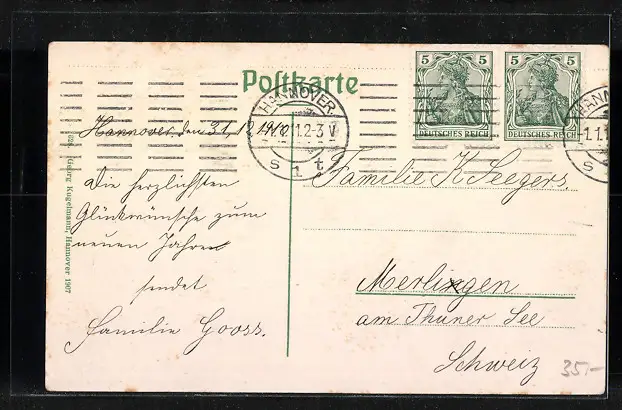 Postkarte
5 5
DEUTSCHES REICH DEUTSCHES REICH
HANNOVER.
1.1.12.2-3 V
S 1 t
HANN
1.1.1
S
Hannover, den 31.12.1911
Die herzlichsten
Glückwünsche zum
neuen Jahre
sendet
Familie Gooss.
Familie K. Seegers.
Merlingen
am Thuner See
Schweiz
35.-
Georg Kugelmann, Hannover 1907